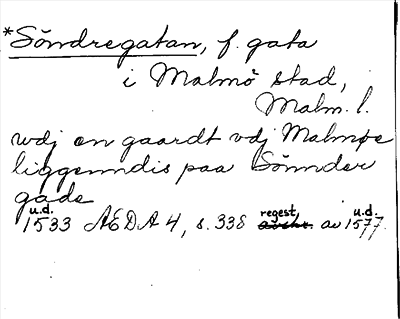 *Söndregatan, f. gata
i Malmö stad,
Malm. l.
wdj en gaardt vdj Malmøe
liggenndis paa Sönnder
gade
u.d. 1533 AEDA 4, s. 338 regest, av u.d. 1577.